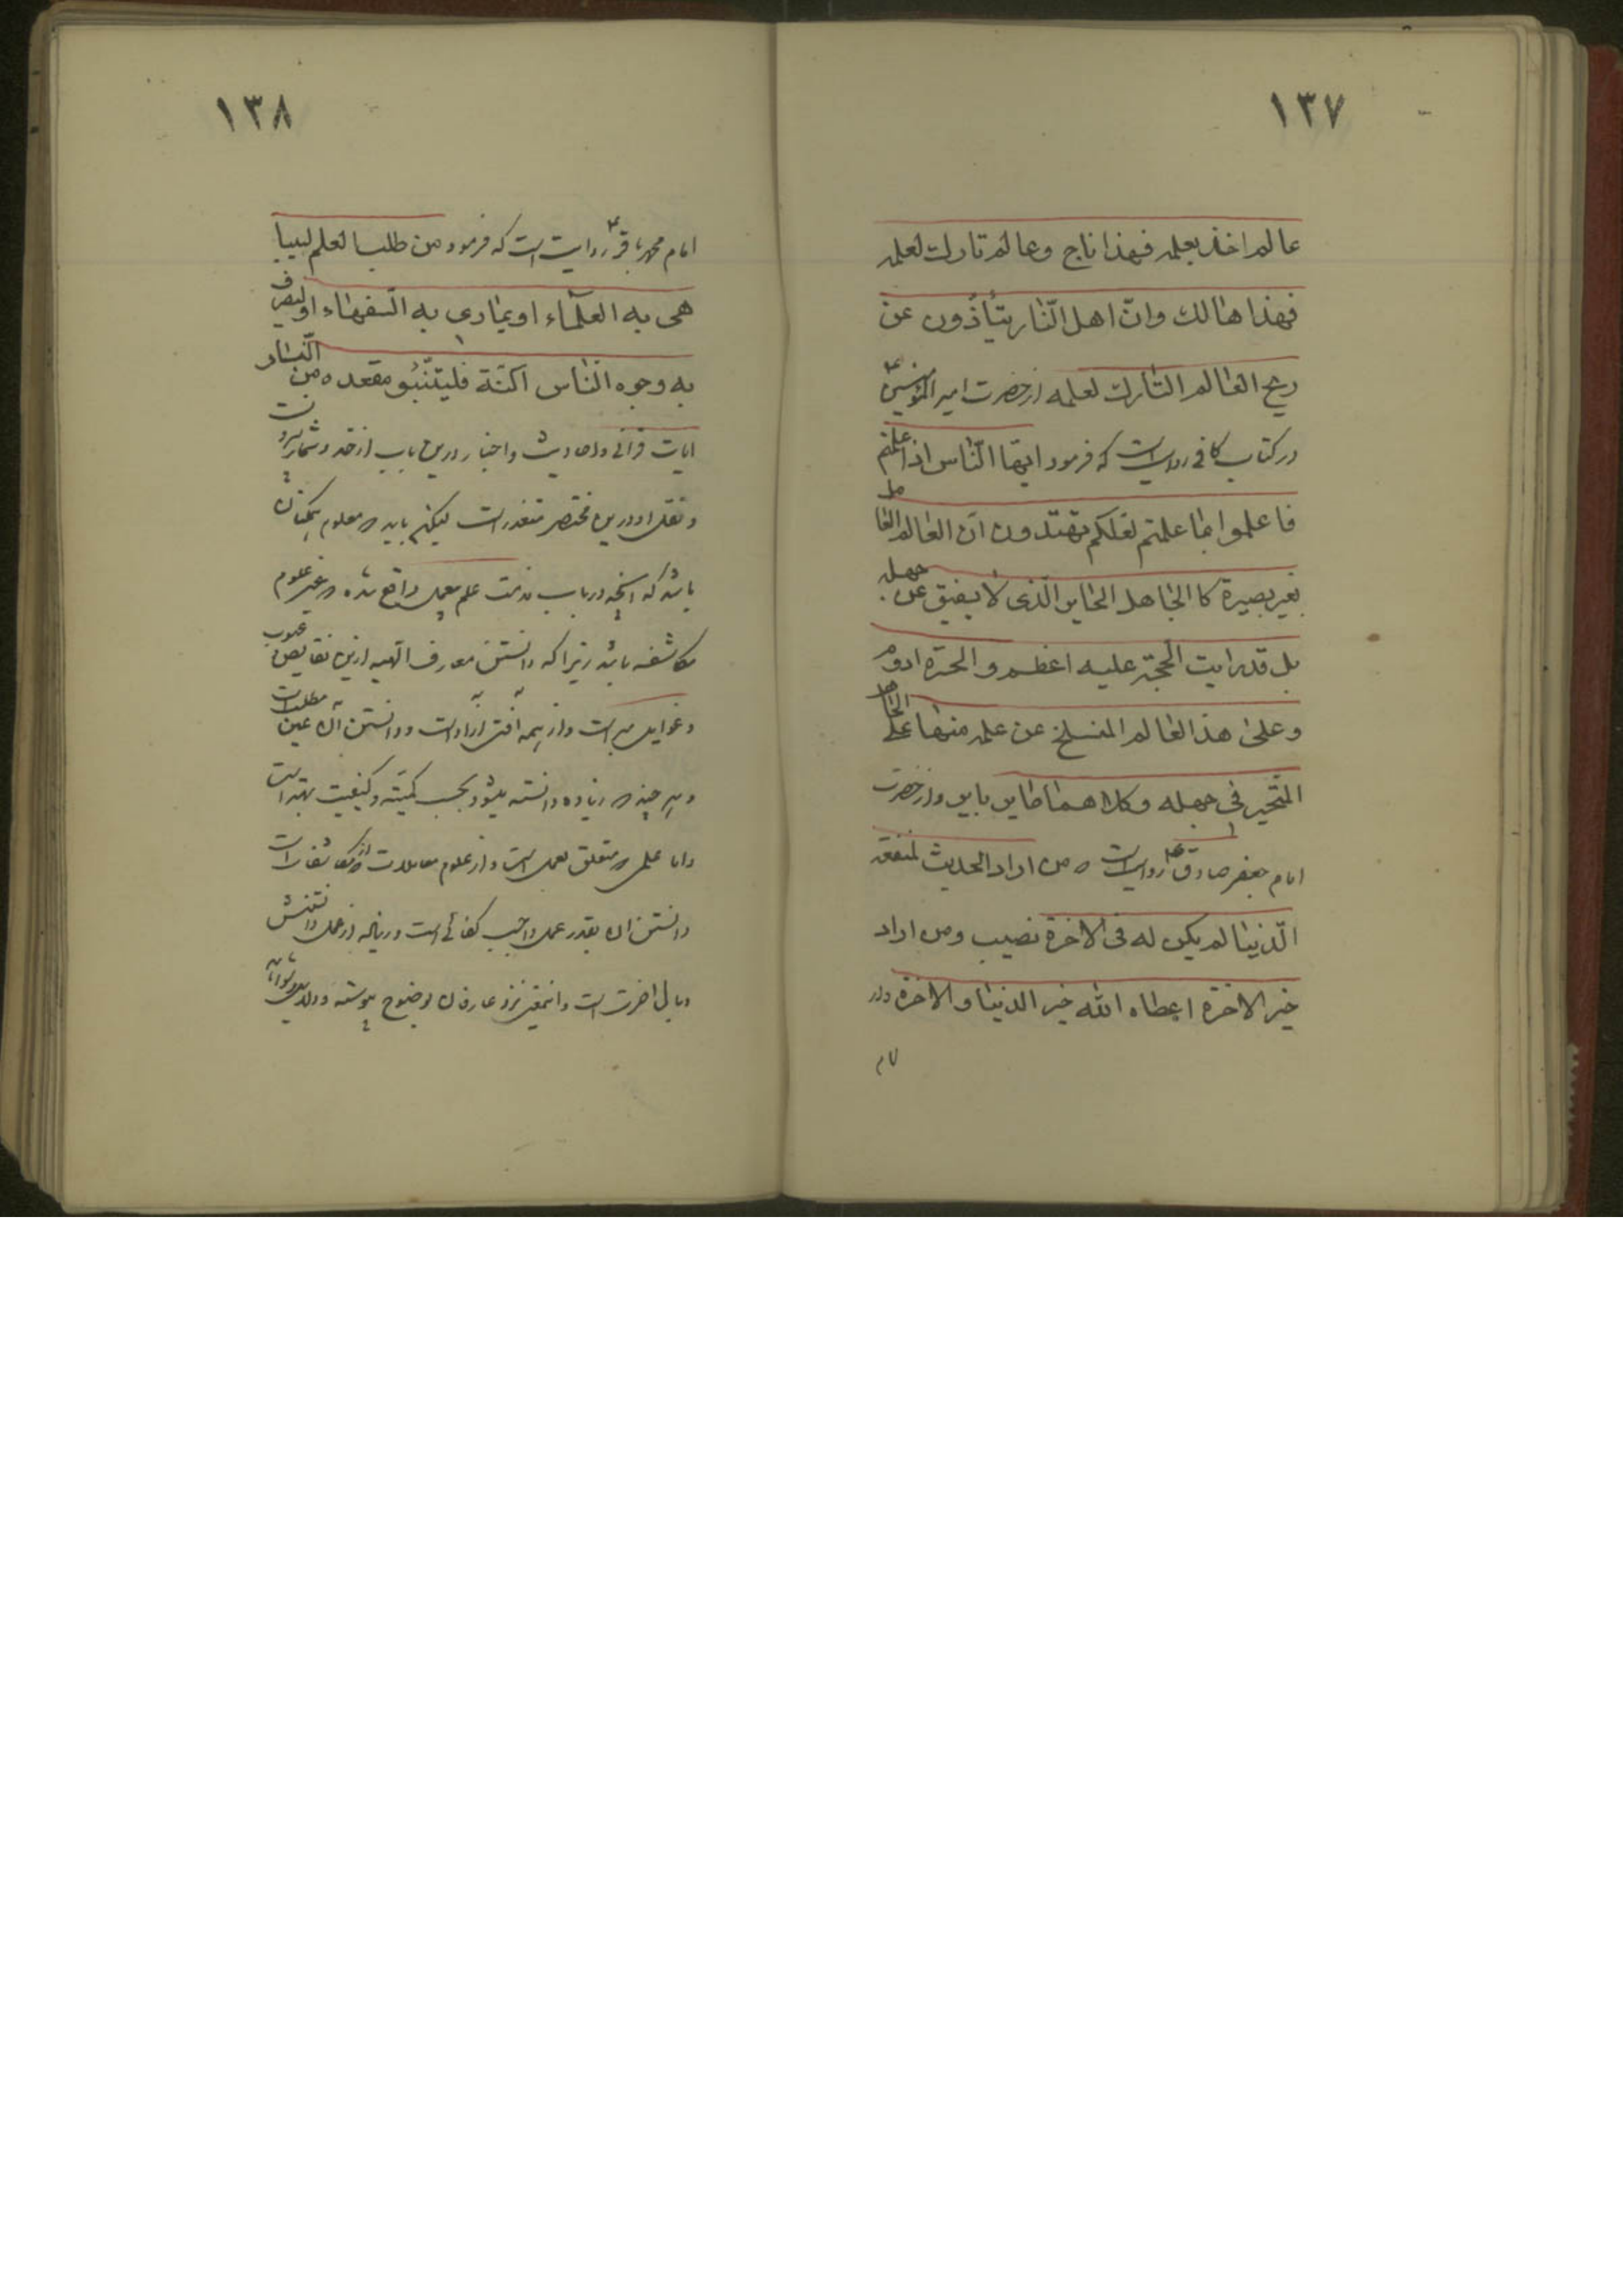 ١٣٧
عالم اخذ بعلمه فهذا ناج وعالم تارك لعلمه
فهذا هالك وانّ اهل النّار يتأذّون عن
ريح العالم التارك لعلمه از حضرت امير المؤمنين ع
در كتاب كافى روايت است كه فرمود ايّها النّاس اذا علمتم
فاعملوا بما علمتم لعلّكم تهتدون انّ العالم العامل
بغير بصيرة كا الجاهل الحاير الّذى لا يفيق عن جهله
بل قد رايت الحجّة عليه اعظم و الحسرة ادوم
و على هذا العالم المنسلخ عن علمه منها على الجاهل
المتحير فى جهله و كلاهما حاير باير و از حضرت
امام جعفر صادق ع روايت است كه من اراد الحديث لمنفعة
الدّنيا لم يكن له فى الاخرة نصيب ومن اراد
خير الاخرة اعطاه الله خير الدنيا و الاخرة و از
١٣٨
امام محمد باقر ع روايت است كه فرمود من طلب العلم ليبا
هى به العلماء او يمارى به السّفهاء او ليصرف
به وجوه النّاس اليه فليتبوّء مقعده من النّار
ايات قرانى و احاديث و اخبار درين باب از حد و شمار بيرونست
و نقل او درين مختصر متعذر است ليكن بايد كه معلوم همكنان
باشد كه انچه در باب مذمت علم بيعمل واقع شده در غير علوم
مكاشفه باشد زيرا كه دانستن معارف الهيه ازين نقايص و عيوب
و غوايل مبرا است و از همه آفتى آزاد است و دانستن آن عين مطلب است
و هر چند كه زياده دانسته ميشود بحسب كميّت و كيفيت بهتر است
و اما علمى كه متعلق بعمل است و از علوم معاملات
دانستن ان بقدر عمل واجب كفائى است و زياده از عمل دانستنش
وبال اخرت است و اينمعنى نزد عارفان بوضوح پيوسته